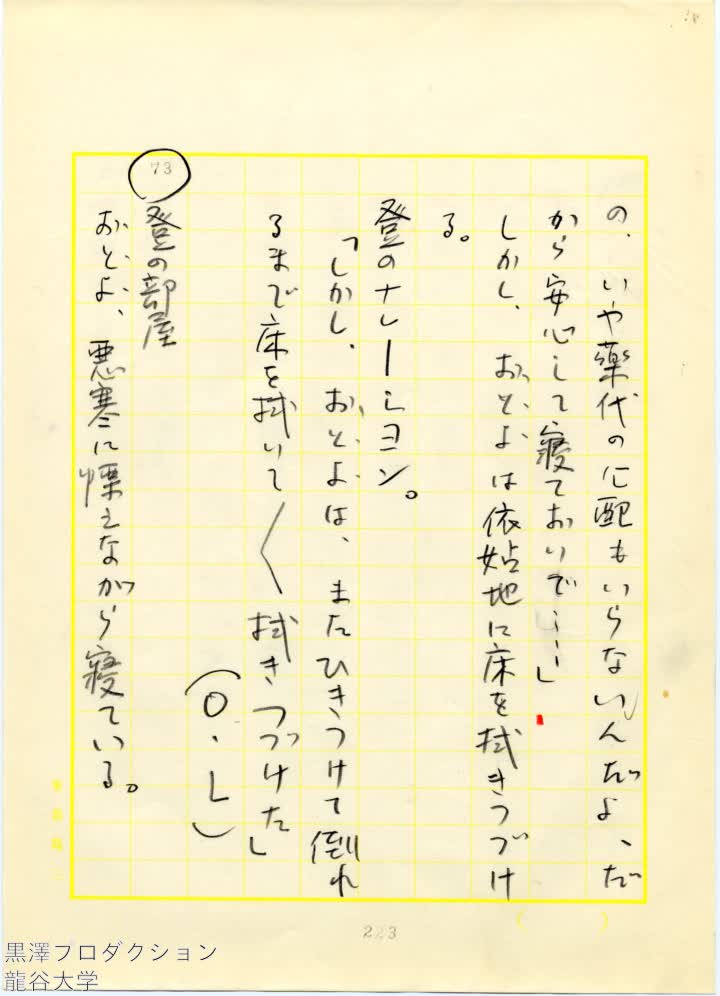 の、いや薬代の心配もいらないんだよ、だ
から安心して寝ておいで……」
しかし、おとよは依姑地に床を拭きつづけ
る。
登のナレーション。
「しかし、おとよは、またひきつけて倒れ
るまで床を拭いて〱拭きつづけた」
(O・L)
73
登の部屋
おとよ、悪寒に慄えながら寝ている。
223
黒澤プロダクション
龍谷大学